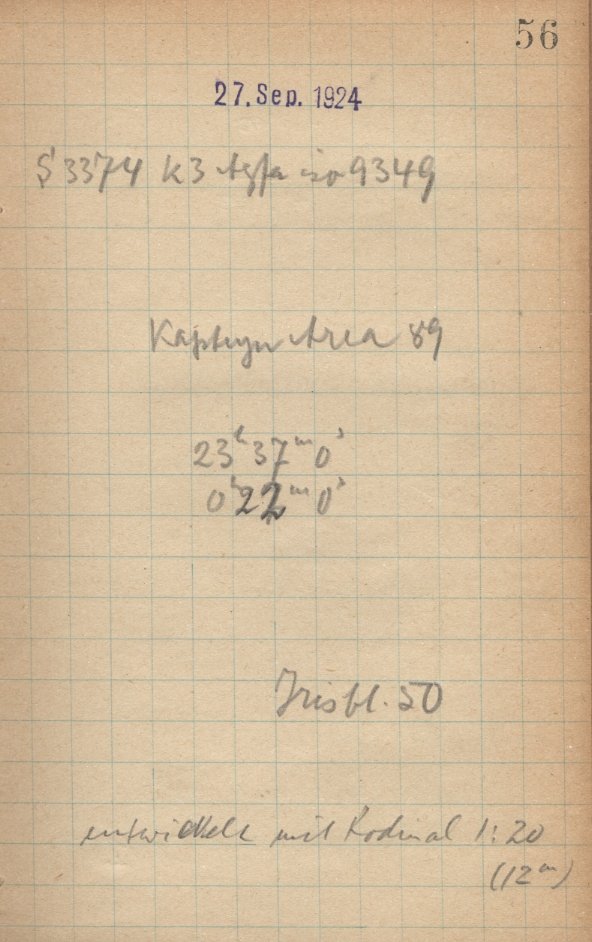 56
27. Sep. 1924
S 3374 K3 Agfa iso 9349
Kapteyn Area 89
23ʰ 37ᵐ 0ˢ
0ʰ 22ᵐ 0ˢ
Irisbl. 50
entwickelt mit Rodinal 1:20
(12ᵐ)